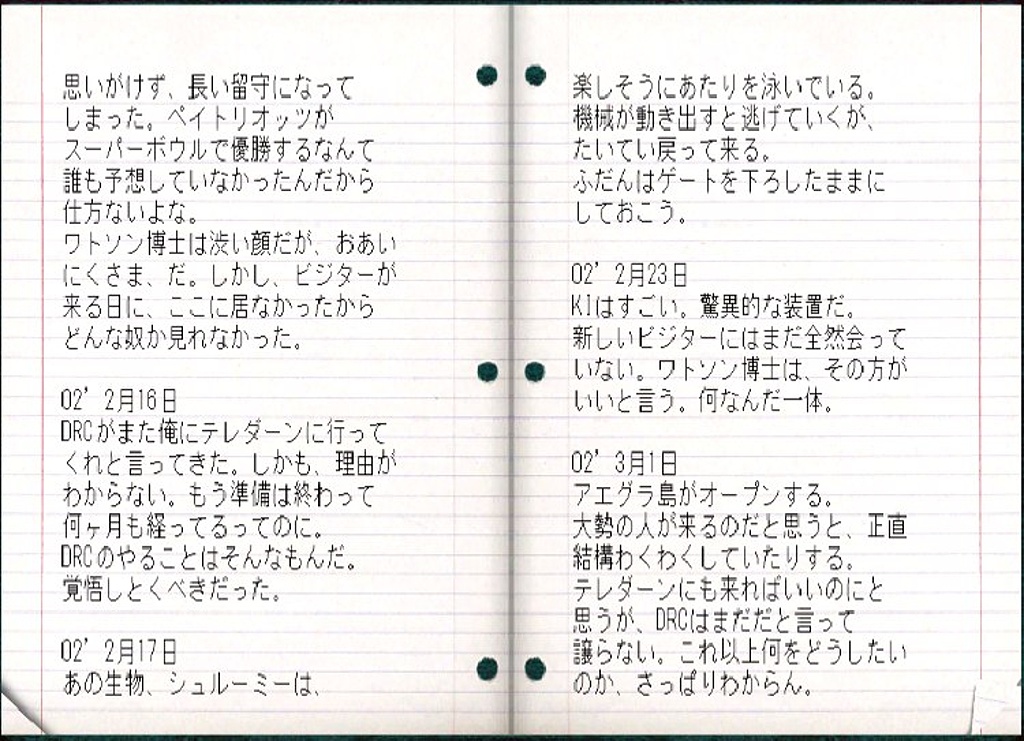 思いがけず、長い留守になって
しまった。ペイトリオッツが
スーパーボウルで優勝するなんて
誰も予想していなかったんだから
仕方ないよな。
ワトソン博士は渋い顔だが、おあい
にくさま、だ。しかし、ビジターが
来る日に、ここに居なかったから
どんな奴か見れなかった。
02’ 2月16日
DRCがまた俺にテレダーンに行って
くれと言ってきた。しかも、理由が
わからない。もう準備は終わって
何ヶ月も経ってるってのに。
DRCのやることはそんなもんだ。
覚悟しとくべきだった。
02’ 2月17日
あの生物、シュルーミーは、
楽しそうにあたりを泳いでいる。
機械が動き出すと逃げていくが、
たいてい戻って来る。
ふだんはゲートを下ろしたままに
しておこう。
02’ 2月23日
KIはすごい。驚異的な装置だ。
新しいビジターにはまだ全然会って
いない。ワトソン博士は、その方が
いいと言う。何なんだ一体。
02’ 3月1日
アエグラ島がオープンする。
大勢の人が来るのだと思うと、正直
結構わくわくしていたりする。
テレダーンにも来ればいいのにと
思うが、DRCはまだだと言って
譲らない。これ以上何をどうしたい
のか、さっぱりわからん。